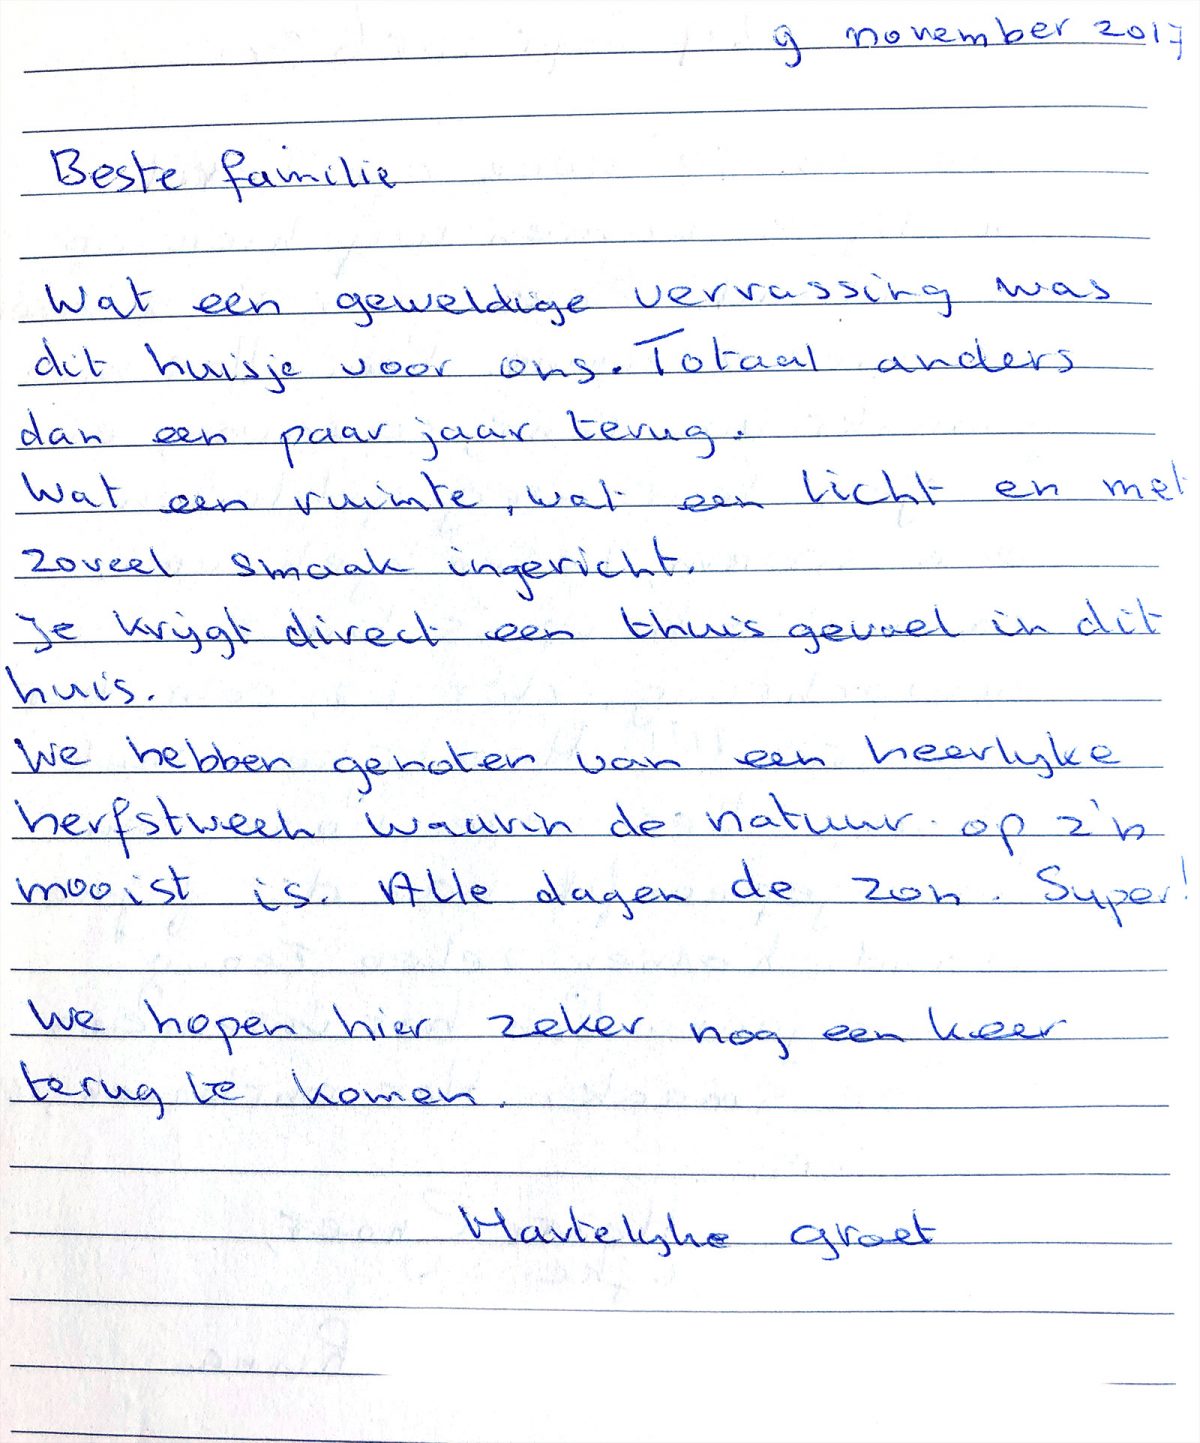 9 november 2017
Beste familie
Wat een geweldige verrassing was
dit huisje voor ons. Totaal anders
dan een paar jaar terug.
Wat een ruimte, wat een licht en met
zoveel smaak ingericht.
Je krijgt direct een thuis gevoel in dit
huis.
We hebben genoten van een heerlijke
herfstweek waarin de natuur op z'n
mooist is. Alle dagen de zon. Super!
We hopen hier zeker nog een keer
terug te komen.
Hartelijke groet